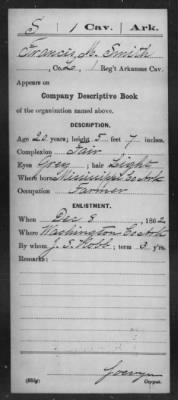 S | 1 | Cav. | Ark.
Francis M. Smith
, Co. L, 1 Reg't Arkansas Cav.
Appears on
Company Descriptive Book
of the organization named above.
DESCRIPTION.
Age 20 years; height 5 feet 7 inches.
Complexion Fair
Eyes Grey; hair Light
Where born Mississippi Co Ark
Occupation Farmer
ENLISTMENT.
When Dec 8, 1862
Where Washington Co Ark
By whom J. S. Robb; term 3 y'rs.
Remarks:
Copyist.